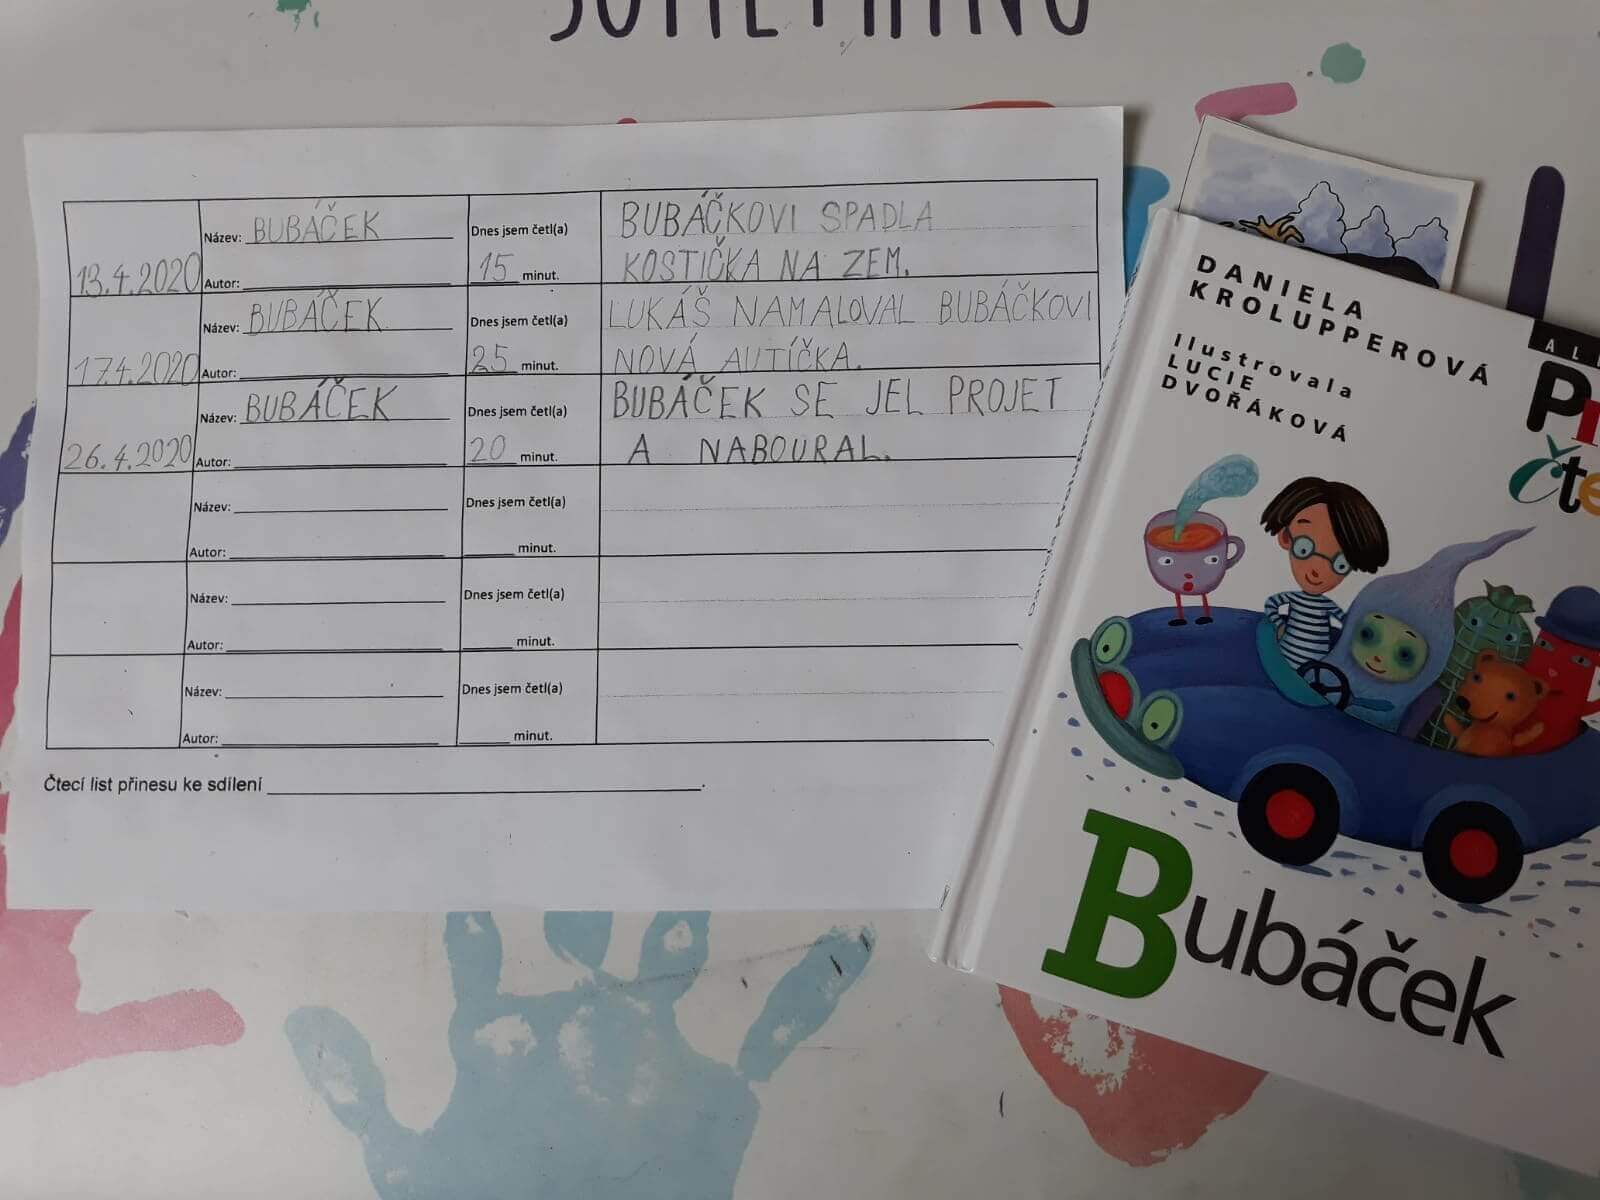 SOMETHING
13.4.2020
Název: BUBÁČEK
Autor:
Dnes jsem četl(a)
15 minut.
BUBÁČKOVI SPADLA
KOSTIČKA NA ZEM.
17.4.2020
Název: BUBÁČEK
Autor:
Dnes jsem četl(a)
25 minut.
LUKÁŠ NAMALOVAL BUBÁČKOVI
NOVÁ AUTÍČKA.
26.4.2020
Název: BUBÁČEK
Autor:
Dnes jsem četl(a)
20 minut.
BUBÁČEK SE JEL PROJET
A NABOURAL.
Název:
Autor:
Dnes jsem četl(a)
minut.
Název:
Autor:
Dnes jsem četl(a)
minut.
Název:
Autor:
Dnes jsem četl(a)
minut.
Čtecí list přinesu ke sdílení .
DANIELA
KROLUPPEROVÁ
Ilustrovala
LUCIE
DVOŘÁKOVÁ
Bubáček